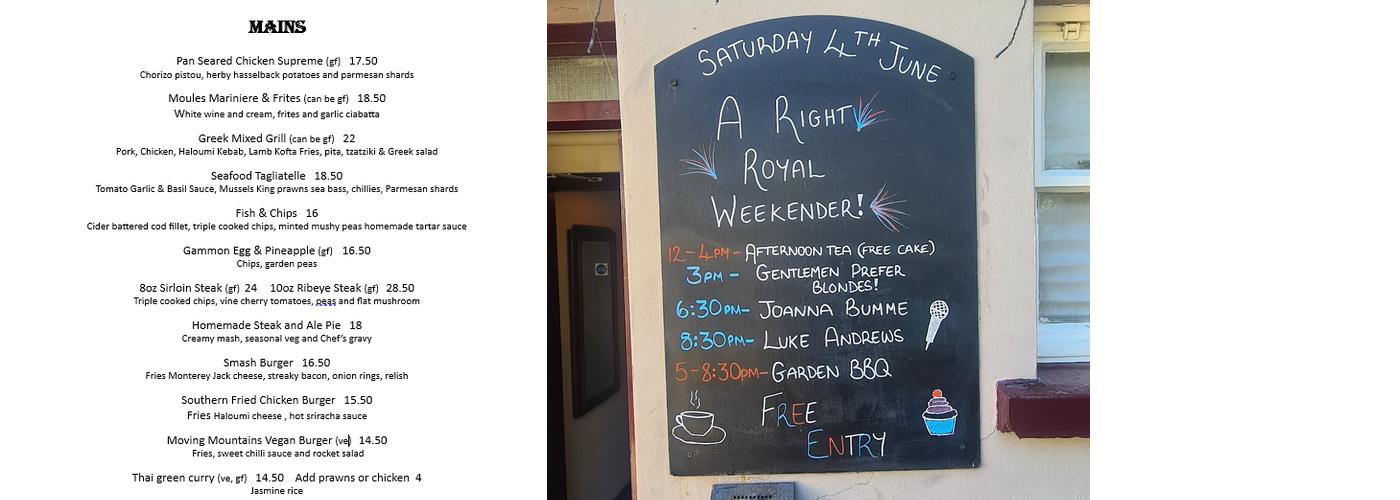 MAINS
Pan Seared Chicken Supreme (gf) 17.50
Chorizo pistou, herby hasselback potatoes and parmesan shards
Moules Mariniere & Frites (can be gf) 18.50
White wine and cream, frites and garlic ciabatta
Greek Mixed Grill (can be gf) 22
Pork, Chicken, Haloumi Kebab, Lamb Kofta Fries, pita, tzatziki & Greek salad
Seafood Tagliatelle 18.50
Tomato Garlic & Basil Sauce, Mussels King prawns sea bass, chillies, Parmesan shards
Fish & Chips 16
Cider battered cod fillet, triple cooked chips, minted mushy peas homemade tartar sauce
Gammon Egg & Pineapple (gf) 16.50
Chips, garden peas
8oz Sirloin Steak (gf) 24 10oz Ribeye Steak (gf) 28.50
Triple cooked chips, vine cherry tomatoes, peas and flat mushroom
Homemade Steak and Ale Pie 18
Creamy mash, seasonal veg and Chef's gravy
Smash Burger 16.50
Fries Monterey Jack cheese, streaky bacon, onion rings, relish
Southern Fried Chicken Burger 15.50
Fries Haloumi cheese , hot sriracha sauce
Moving Mountains Vegan Burger (ve) 14.50
Fries, sweet chilli sauce and rocket salad
Thai green curry (ve, gf) 14.50 Add prawns or chicken 4
Jasmine rice
SATURDAY 4TH JUNE
A RIGHT
ROYAL
WEEKENDER!
12-4PM - AFTERNOON TEA (FREE CAKE)
3PM - GENTLEMEN PREFER
BLONDES!
6:30PM- JOANNA BUMME
8:30PM- LUKE ANDREWS
5-8:30PM- GARDEN BBQ
FREE
ENTRY